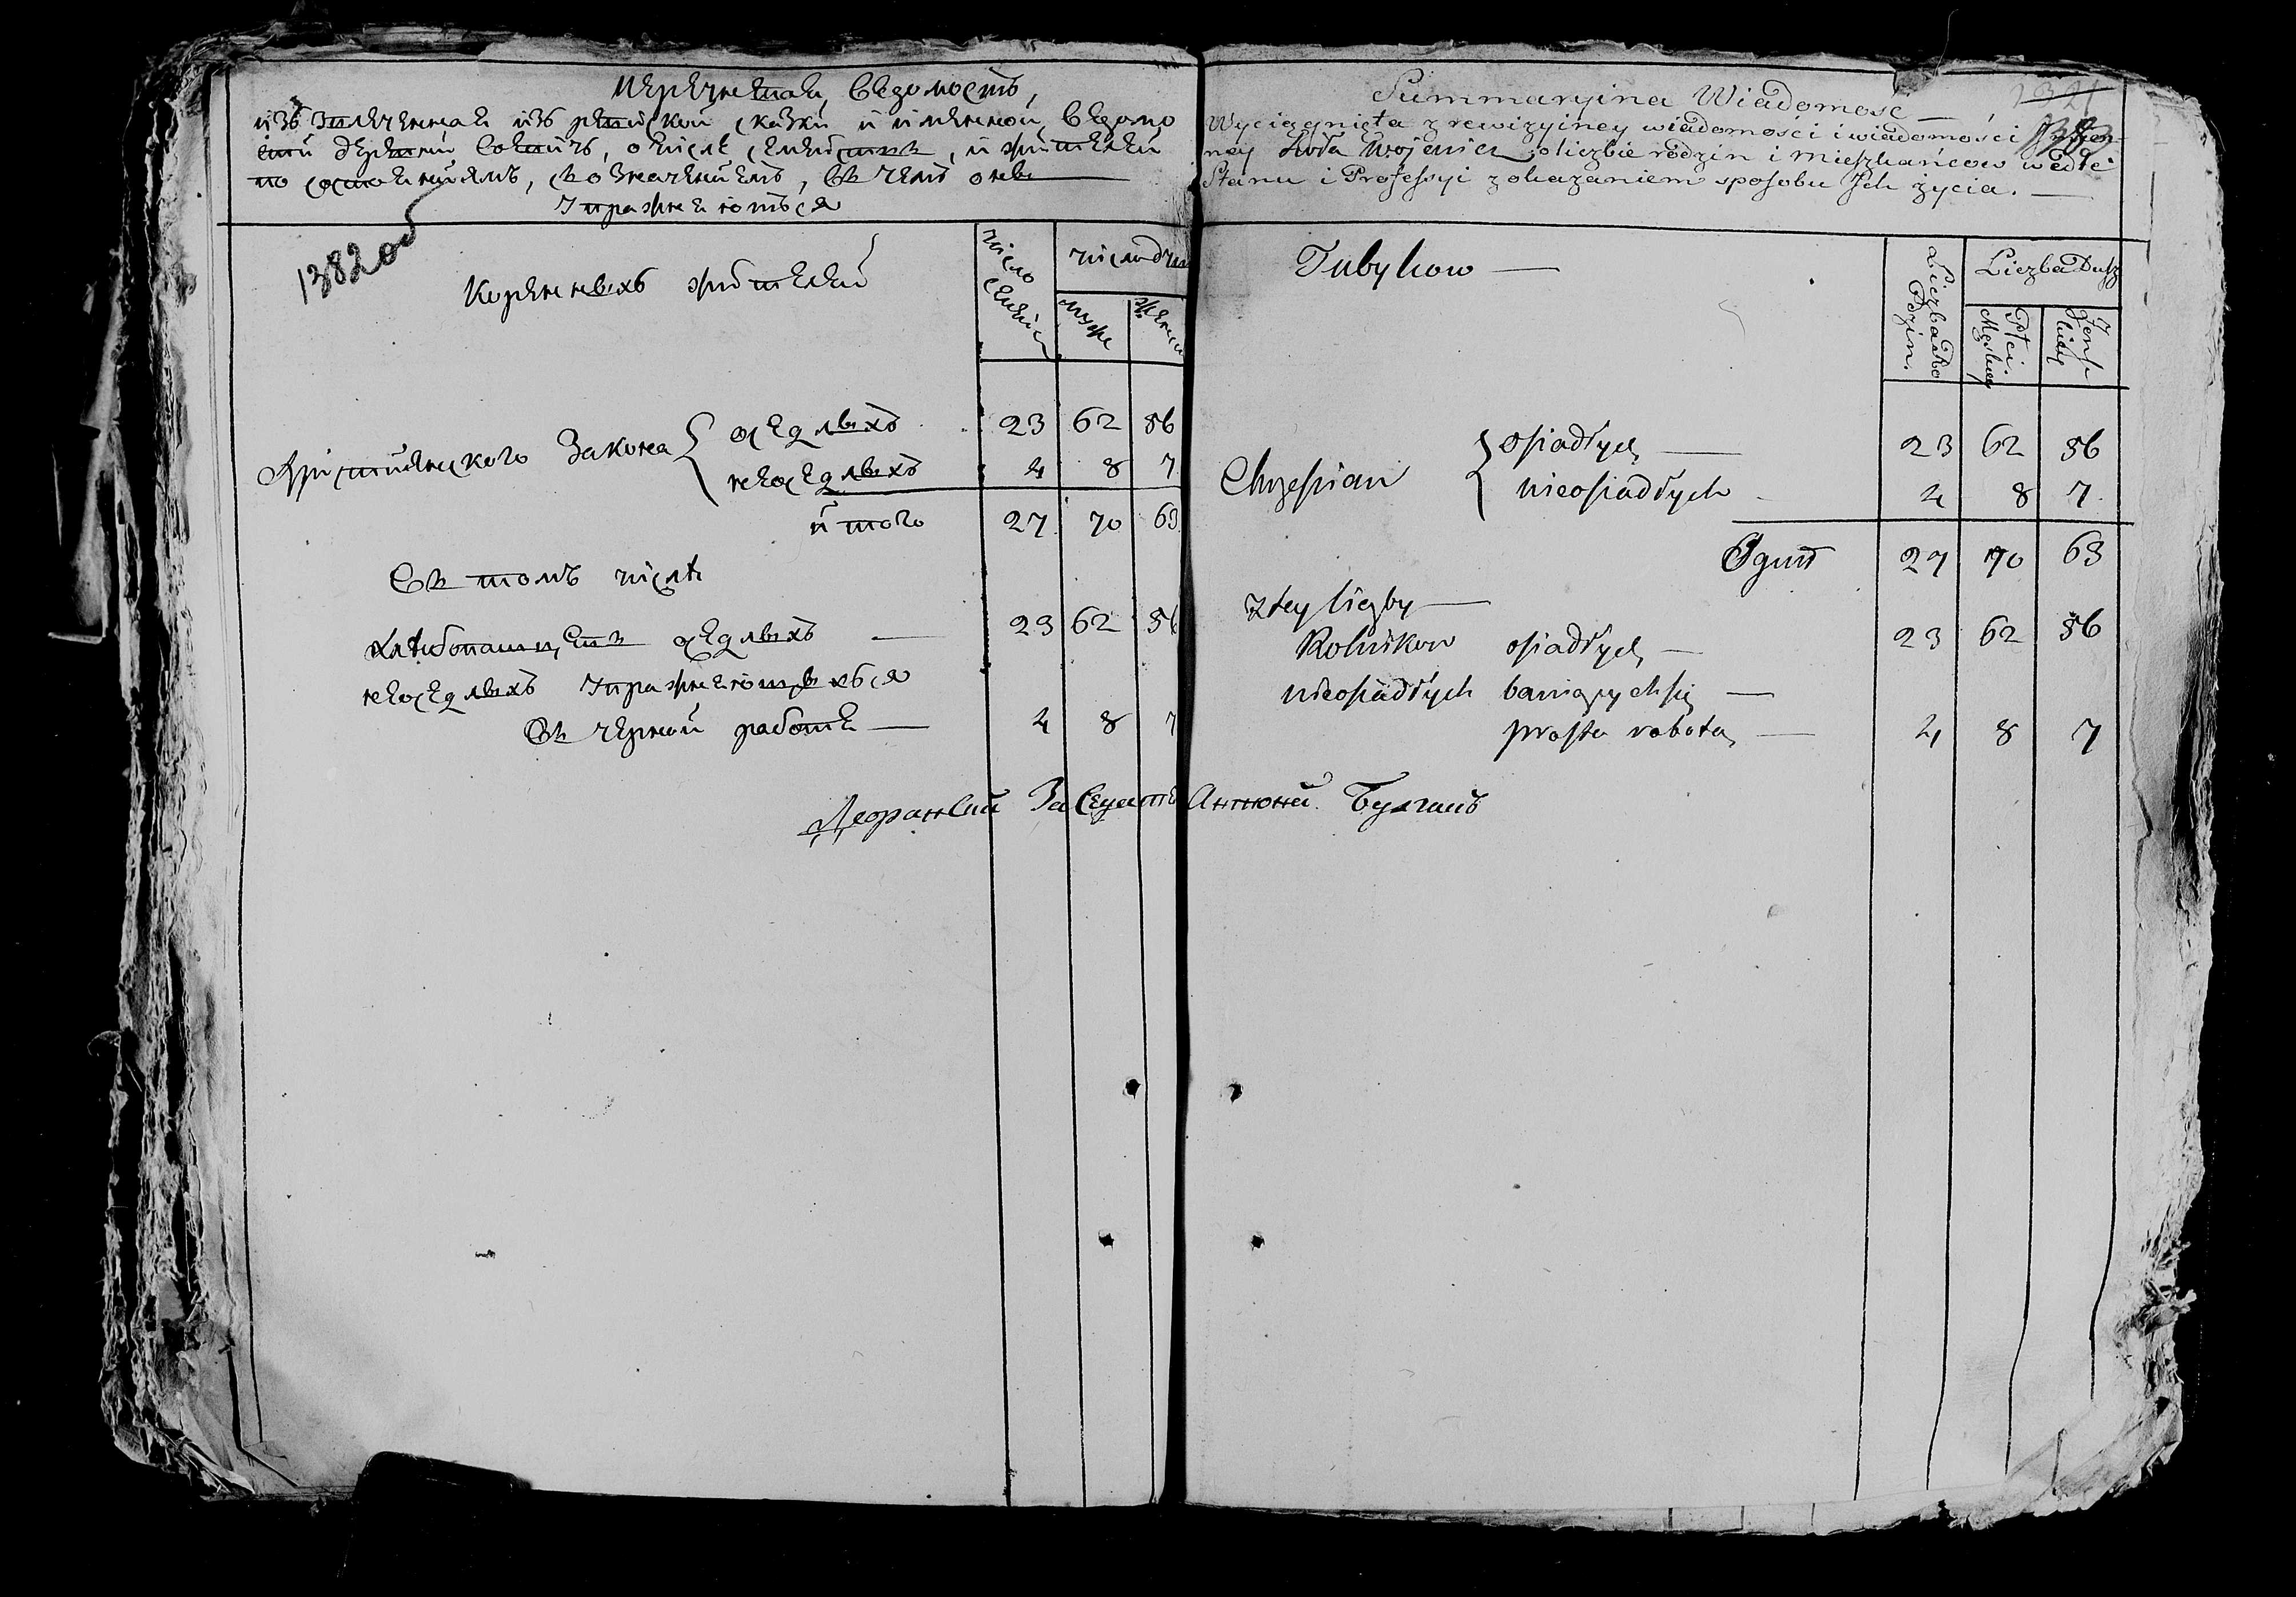 Перечневая ведомость,
извлеченная из ревиской скаски и именной ведомо
сти деревни Воевич, о числе семейств, и жителей
по состояниям, с означением, в чем оне
упражняются
1382об
Коренных жителей
число семей
число душ
муж
женск
Христианского Закона { оседлых 23 62 56
неоседлых 4 8 7
итого 27 70 63
в том числе
хлебопашцев оседлых — 23 62 56
неоседлых упражняющихся
в черной работе — 4 8 7
Дворянский Заседатель Антоний Булгаг
1321
1383
Summaryina Wiadomość —
Wyciągnięta z rewizyiney wiadomości i wiadomości
ney Sioła Wojewicz o liczbie rodzin i mieszkańcow wedle
Stanu i Professyi z okazaniem sposobu Ich życia. —
Tubylcow —
Liczba Rodzin.
Liczba Dusz
Płci Męskiey
Żeńskiey
Chrześcian { osiadłych — 23 62 56
nieosiadłych - 4 8 7.
Oguł 27 70 63
z tey liczby —
Rolnikow osiadłych — 23 62 56
nieosiadłych bawiących się —
prostą robotą — 4 8 7